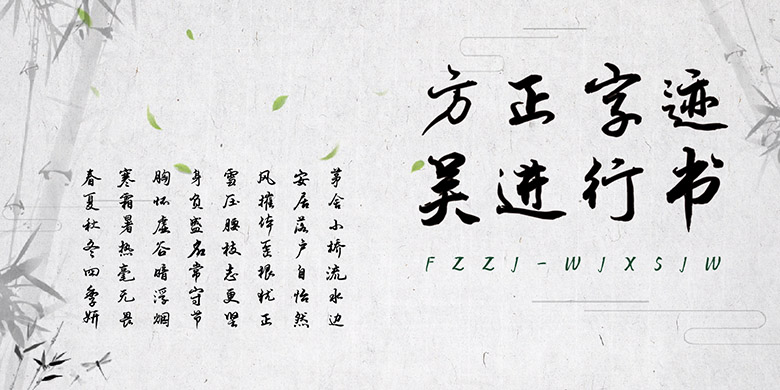 方正字迹
吴进行书
FZZJ-WJXSJW
茅舍小桥流水边
安居落户自怡然
风摧体歪根犹正
雪压腰枝志更坚
身负盛名常守节
胸怀虚谷暗浮烟
寒霜暑热毫无畏
春夏秋冬四季妍